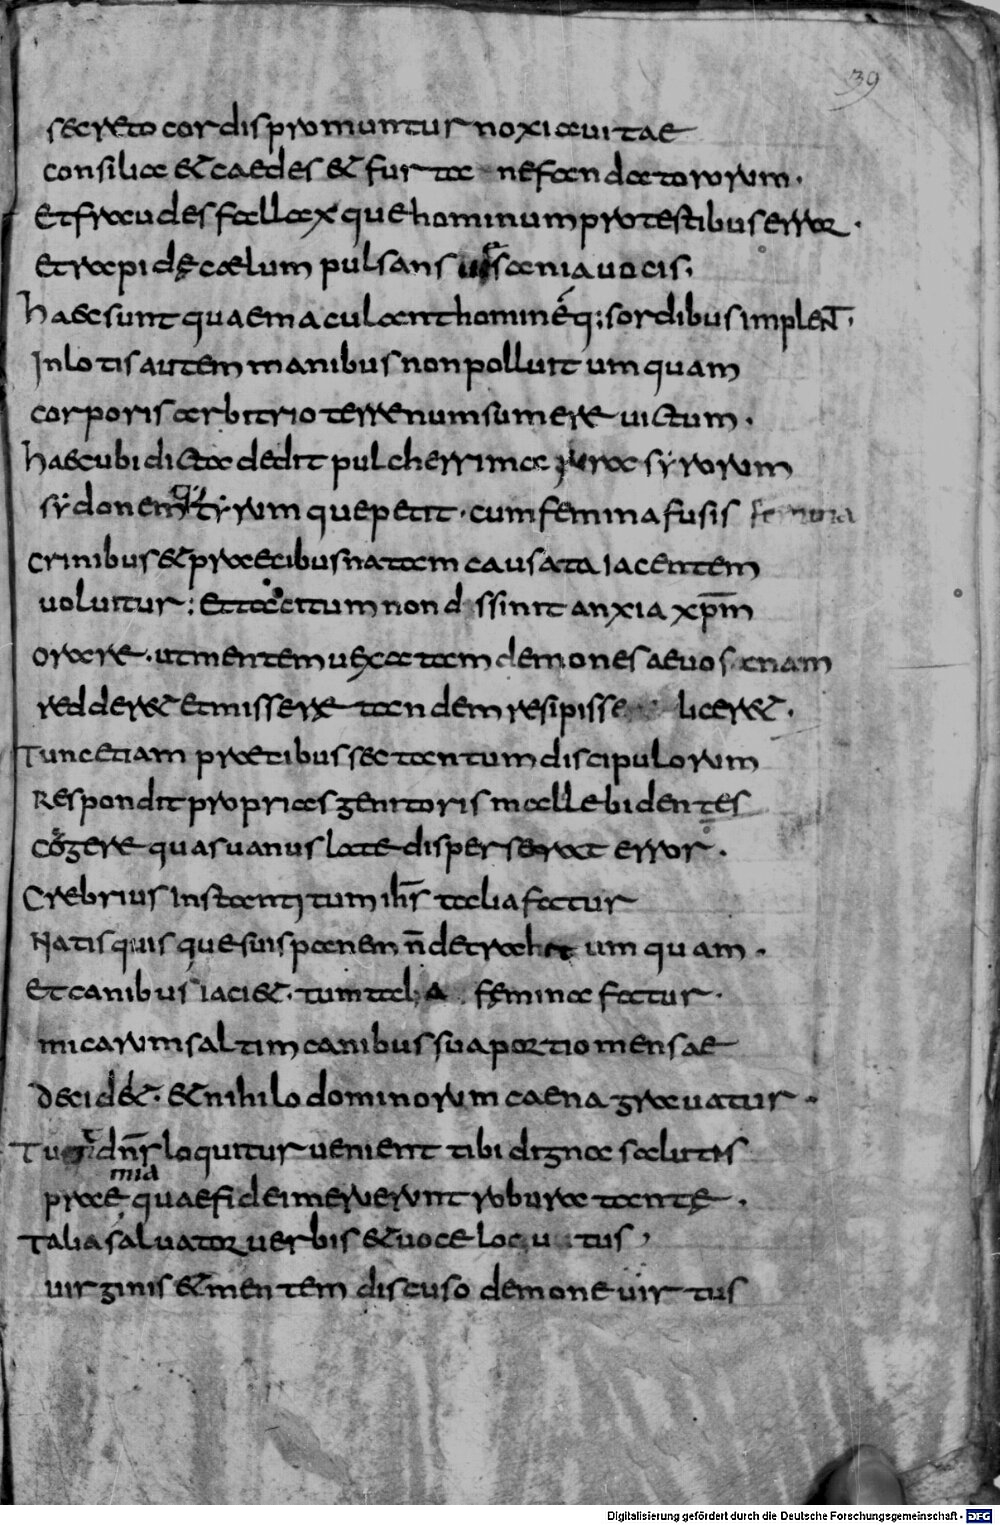 39
secreto cordis promuntur noxia uitae
consilia & caedes & furta nefandatororum.
Et fraudes fallax que hominum pro testibus error.
et rapide caelum pulsans insania uocis.
haec sunt quae maculant hominéq; sordibus implent̄.
Inlotis autem manibus non polluit umquam
corporis arbitrio terrenum sumere uictum.
haec ubi dicta dedit pulcherrima rura syrorum
sydonem tyrum que petit. cum femina fusis femina
crinibus & precibus natam causata iacentem
uoluitur; et tacitum non dessinit anxia xp̄m
orare. ut mentem uexatam demones aeuo sanam
redder& et missere tandem resipisse licer&.
Tunc etiam praecibus sectantum discipulorum
Respondit proprias genitoris malle bidentes
cogere quas uanus late disperserat error.
Crebrius Instanti tum ih̄s talia fatur
Natis quis que suis panem n̄ detrahit umquam.
Et canibus iaci&. tum talia femina fatur.
micarum saltim canibus sua portio mensae
decid&. & nihilo dominorum caena grauatur.
Tum dn̄s loquitur uenient tibi digna salutis
mia
prae quae fidei meruerunt robura tante.
Talia saluator uerbis & uoce locutus,
uirginis & mentem discuso demone uirtus
Digitalisierung gefördert durch die Deutsche Forschungsgemeinschaft - DFG